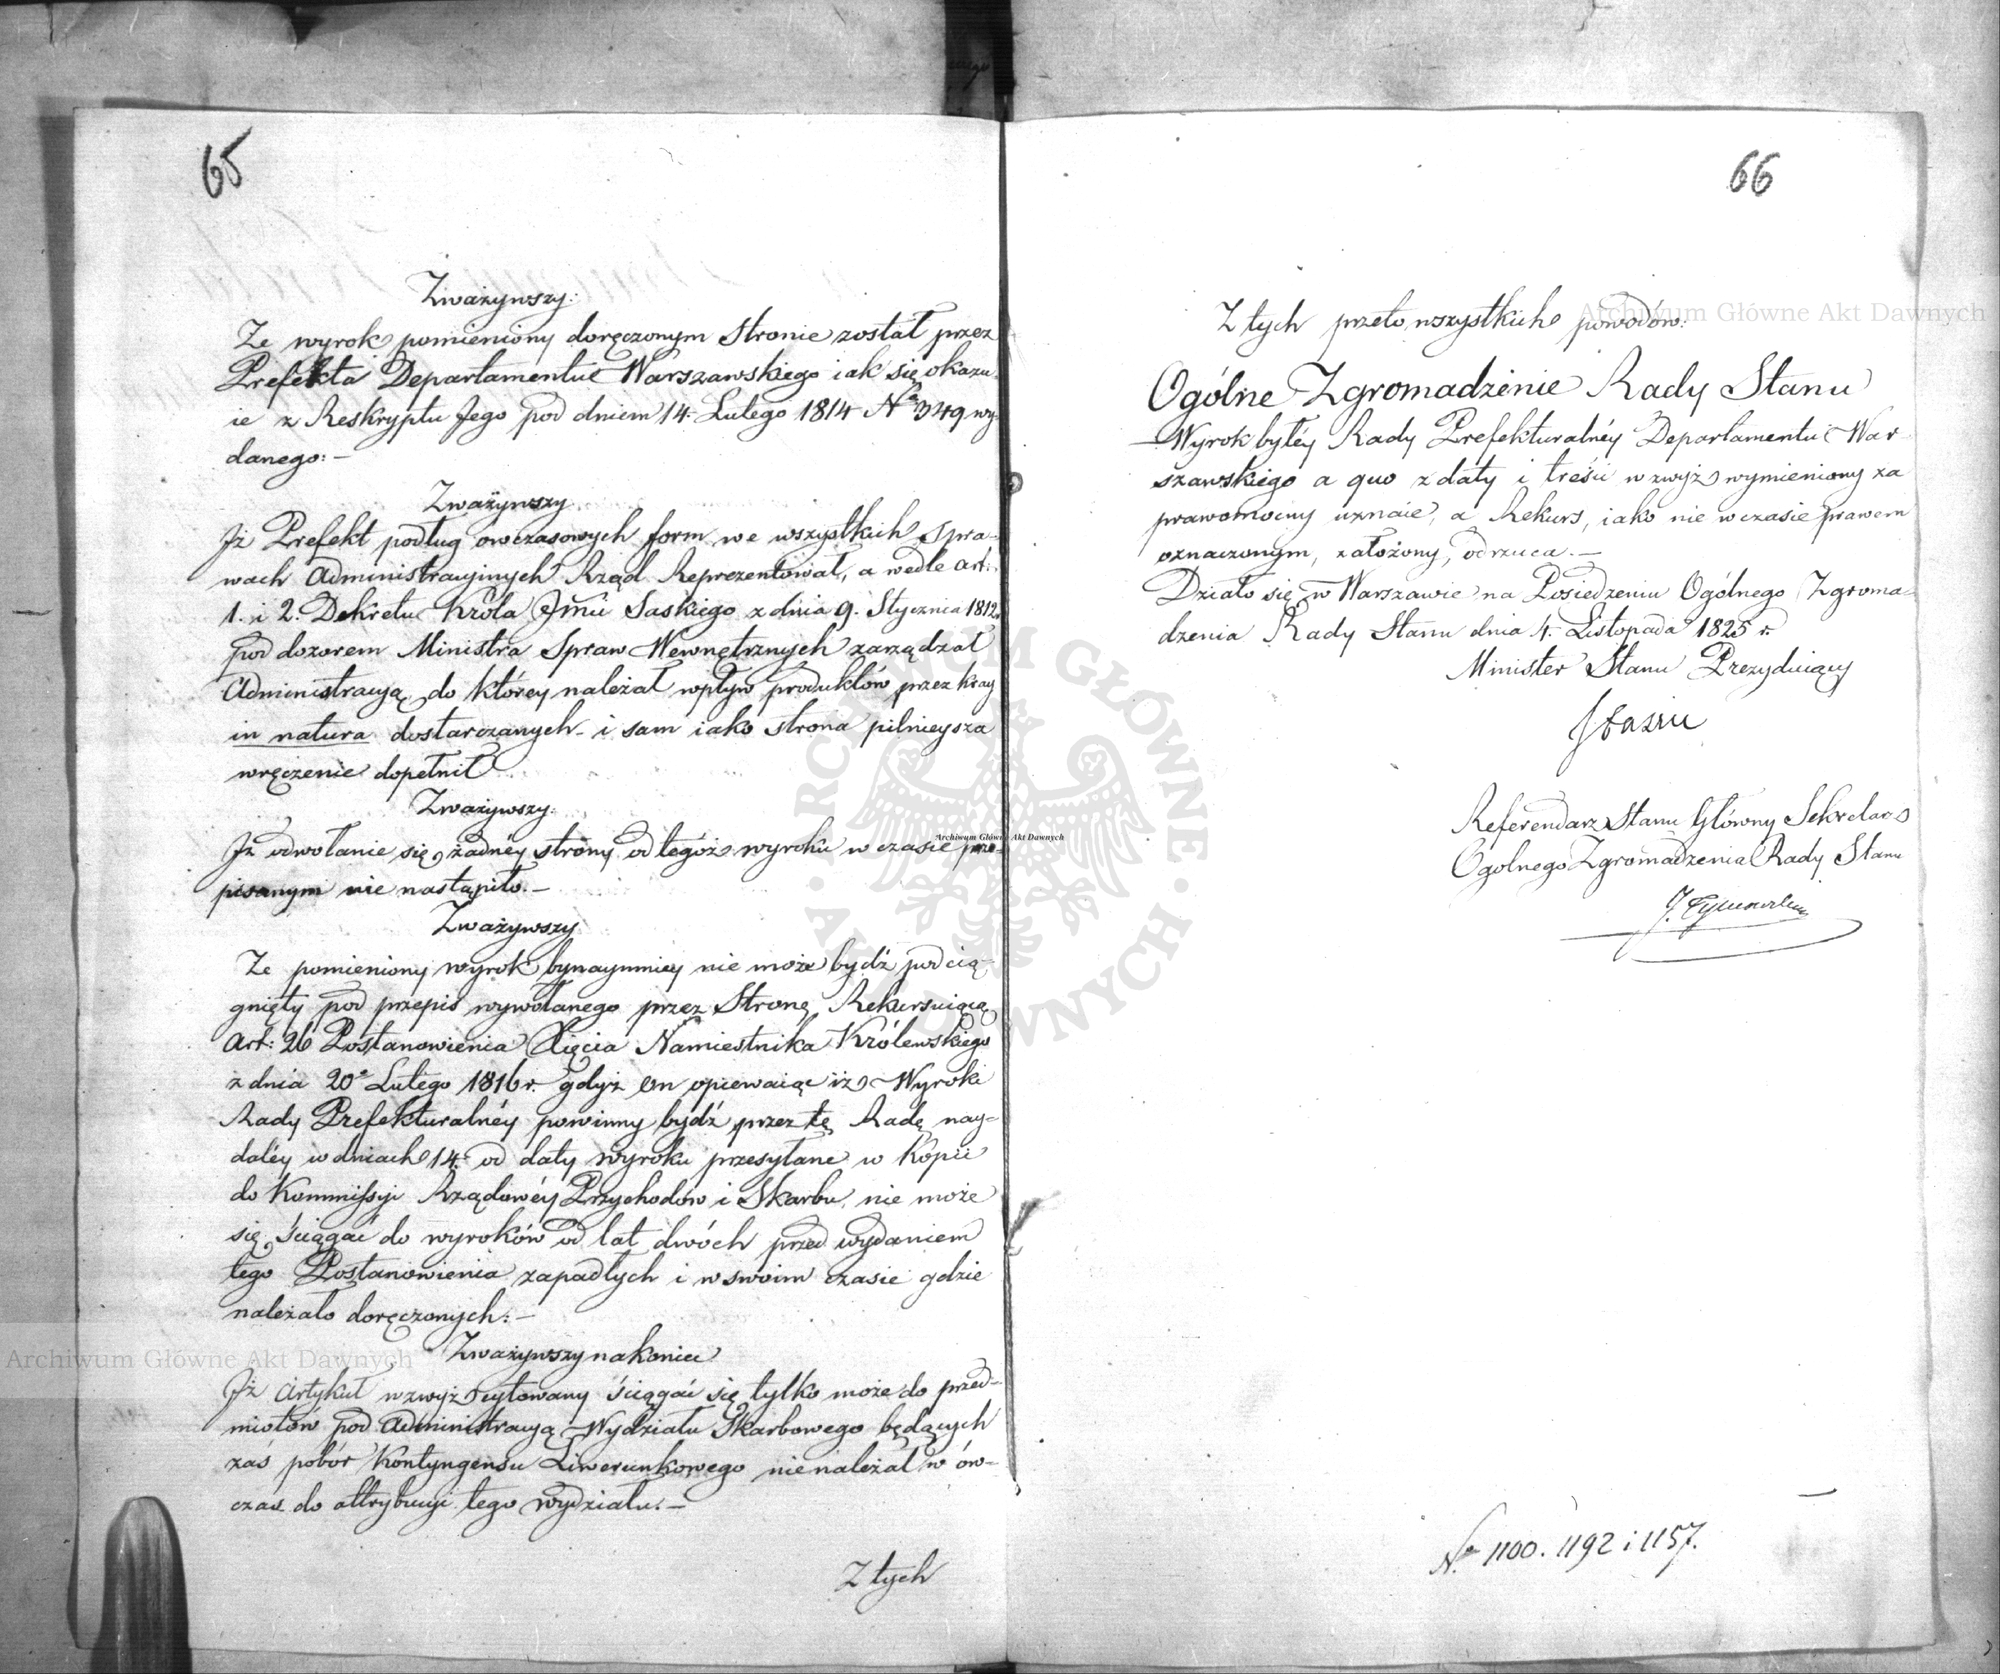 65
Zważywszy:
Że wyrok pomieniony doręczonym Stronie został przez
Prefekta Departamentu Warszawskiego iak się okazu-
ie z Reskryptu Jego pod dniem 14. Lutego 1814 No 349 wy-
danego: —
Zważywszy
Iż Prefekt podług owczasowych form we wszystkich spra-
wach Administracyinych Rząd Reprezentował, a wedle art:
1. i 2. Dekretu Króla Jmci Saskiego z dnia 9. Stycznia 1812.
pod dozorem Ministra Spraw Wewnętrznych zarządzał
Administracyą do którey należał wpływ produktów przez kray
in natura dostarczanych - i sam iako strona pilnieysza
wręczenie dopełnił
Zważywszy:
Iż odwołanie się żadnéy strony od tegóż wyroku w czasie prze-
pisanym nie nastąpiło. —
Zważywszy
Że pomieniony wyrok bynaymniey nie może bydź podcią-
gnięty pod przepis wywołanego przez Stronę Rekursuiącą
Art: 26 Postanowienia Xięcia Namiestnika Królewskiego
z dnia 20o Lutego 1816 r. gdyż on opiewaiąc iż Wyroki
Rady Prefekturalnéy powinny bydź przez tę Radę nay-
daléy w dniach 14. od daty wyroku przesyłane w Kopii
do Kommissyi Rządowéy Przychodów i Skarbu, nie może
się ściągać do wyroków od lat dwóch przed wydaniem
tego Postanowienia zapadłych i w swoim czasie gdzie
należało doręczonych: —
Zważywszy nakoniec
Iż Artykuł wzwyż cytowany ściągać się tylko może do przed-
miotów pod Administracyą Wydziału Skarbowego będących
zaś pobór Kontyngensu Liwerunkowego nienależał w ów-
czas do attrybucyi tego wydziału. —
Z tych
66
Z tych przeto wszystkich powodów:
Ogólne Zgromadzenie Rady Stanu
Wyrok byłéy Rady Prefekturalnéy Departamentu War-
szawskiego a quo z daty i treści wzwyż wymieniony za
prawomocny uznaie, a Rekurs, iako nie w czasie prawem
oznaczonym, założony, odrzuca. —
Działo się w Warszawie na Posiedzeniu Ogólnego Zgroma-
dzenia Rady Stanu dnia 4. Listopada 1825 r.
Minister Stanu Prezyduiący
Staszic
Referendarz Stanu Główny Sekretarz
Ogolnego Zgromadzenia Rady Stanu
No 1100. 1192 i 1157.
Archiwum Główne Akt Dawnych
Archiwum Główne Akt Dawnych
Archiwum Główne Akt Dawnych
ARCHIWUM GŁÓWNE · AKT DAWNYCH ·